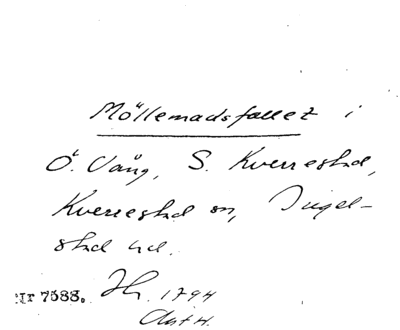 Möllemadsfallet i
Ö. Vång, S. Kverrestad,
Kverrestad sn, Ingel-
stad hd.
Nr 7588. Hr. 1794